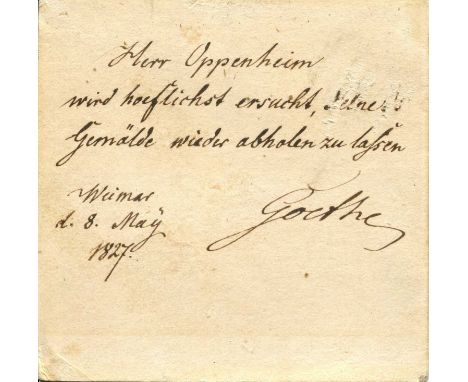 Herr Oppenheim
wird hoeflichst ersucht, Seine
Gemälde wieder abholen zu laſsen
Weimar
d. 8. May
1827.
Goethe